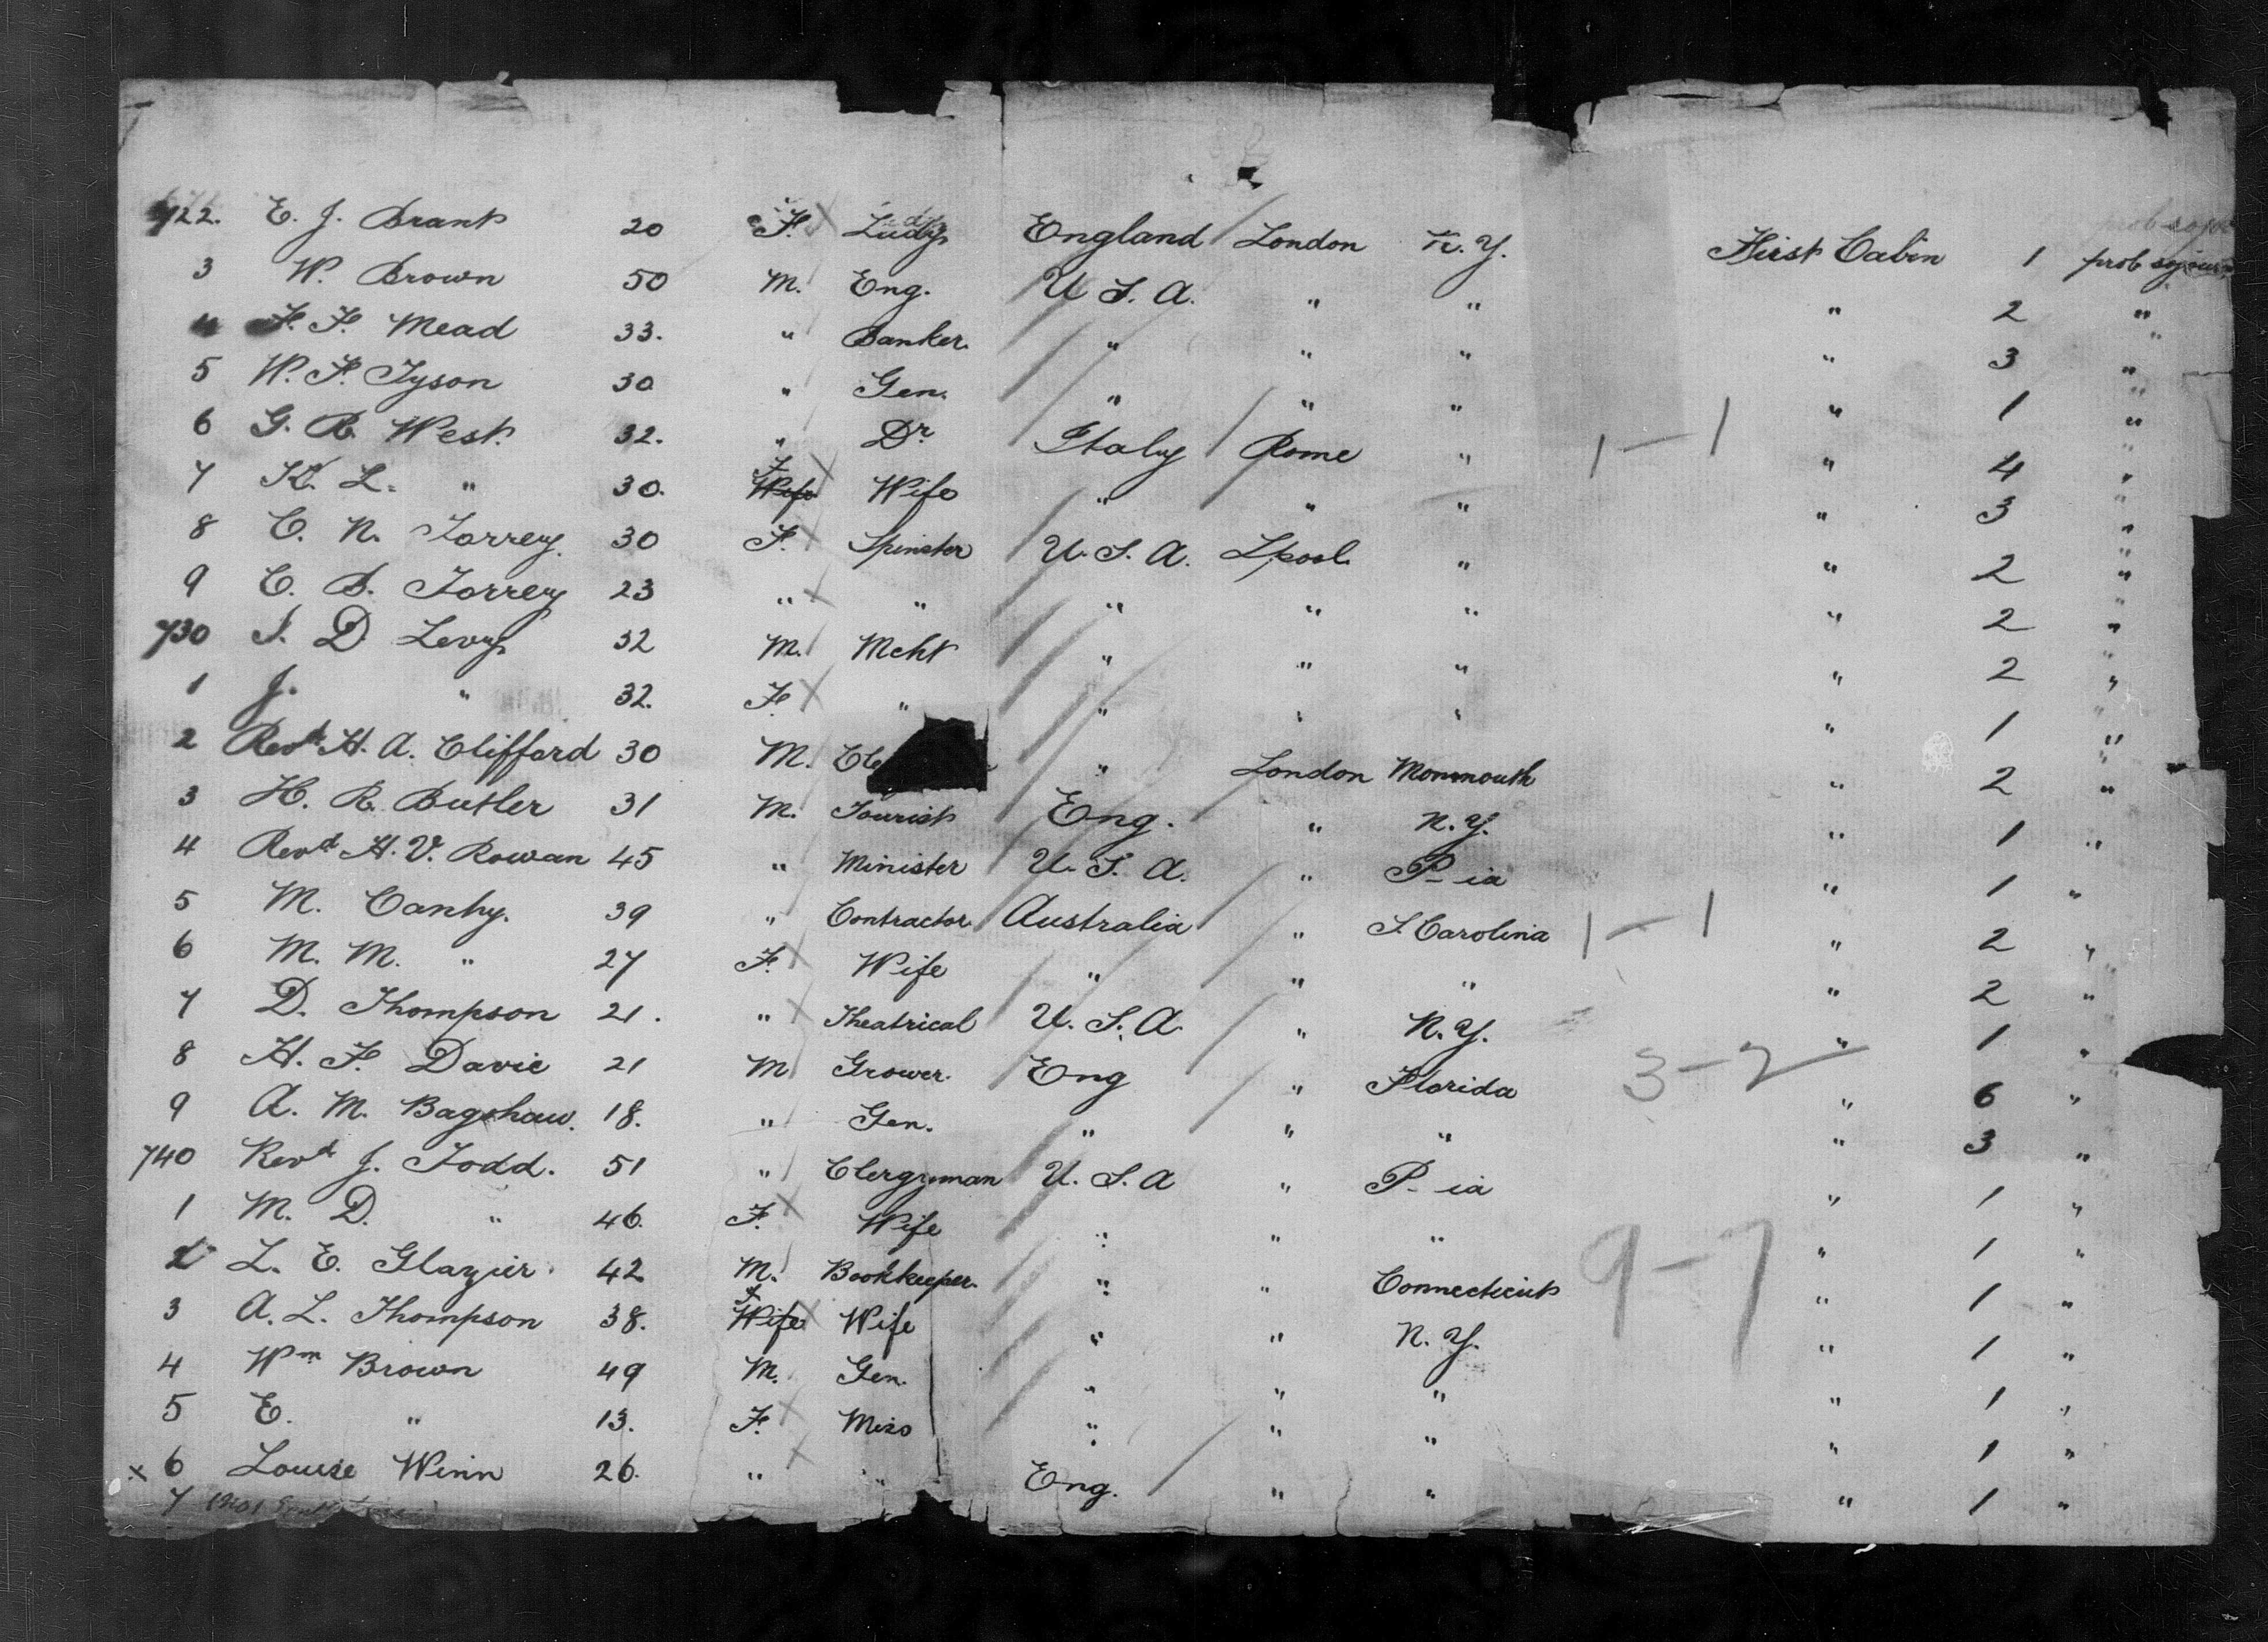 722. E. J. Brant 20 F. Lady England London N.Y. First Cabin 1 prob sojourn
3 W. Brown 50 M. Eng. U.S.A. " " " 2 "
4 F. F. Mead 33. " Banker. " " " " 3 "
5 W. F. Tyson 30 " Gen. " " " " 1 "
6 G. R. West. 32. " Dr Italy Rome " 1 - 1 " 4 "
7 K. L. " 30. F Wife Wife " " " " 3 "
8 C. N. Torrey. 30 F. Spinster U.S.A. Lpool. " " 2 "
9 C. B. Torrey 23 " " " " " " 2 "
730 S. D. Levy 32 M. Mcht " " " " 2 "
1 J. " 32. F. " " " " " 1 "
2 Revd H. A. Clifford 30 M. Cle " London Monmouth " 2 "
3 H. R. Butler 31 M. Tourist Eng. " N.Y. " 1 "
4 Revd H. V. Rowan 45 " Minister U.S.A. " P-ia " 1 "
5 M. Canhy. 39 " Contractor Australia " S. Carolina 1 - 1 " 2 "
6 M. M. " 27 F. Wife " " " " 2 "
7 D. Thompson 21. " Theatrical U.S.A. " N.Y. " 1 "
8 H. F. Davie 21 M Grower. Eng " Florida 3 - 2 " 6 "
9 A. M. Bagshaw. 18. " Gen. " " " " 3 "
740 Revd J. Todd. 51 " Clergyman U.S.A " P-ia " 1 "
1 M. D. " 46. F. Wife " " " " 1 "
2 L. E. Glazier. 42 M. Bookkeeper. " " Connecticut 9 - 7 " 1 "
3 A. L. Thompson 38. F Wife Wife " " N.Y. " 1 "
4 Wm Brown 49 M. Gen. " " " " 1 "
5 E. " 13. F. Miss " " " " 1 "
x 6 Louise Winn 26. " " Eng. " " " 1 "
7